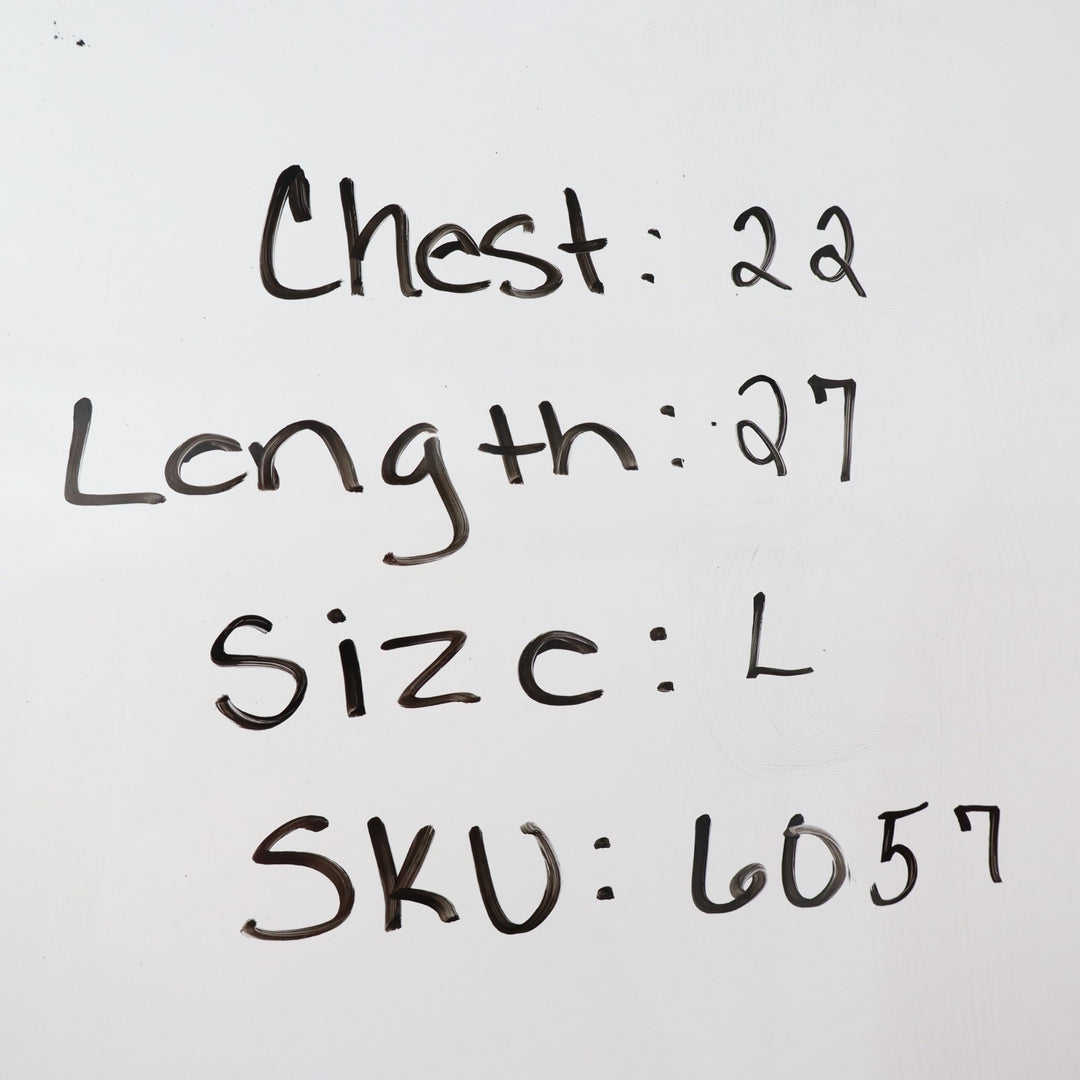 Chest: 22
Length: 27
Size: L
SKU: 6057